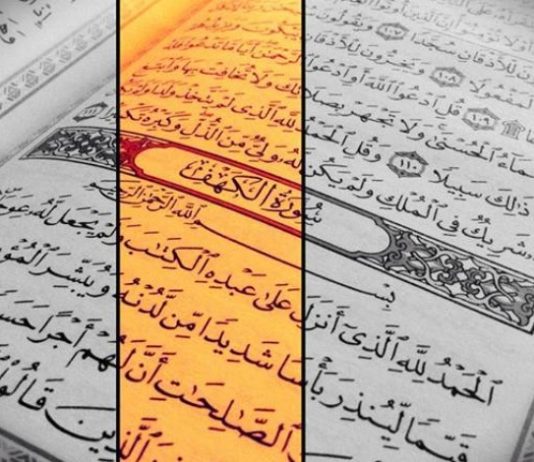 أَوْ لَا تُؤْمِنُوٓا۟ إِنَّ ٱلَّذِينَ أُوتُوا۟
لِلْأَذْقَانِ سُجَّدًا ١٠٧ وَيَقُولُونَ
لَمَفْعُولًا ١٠٨ وَيَخِرُّونَ لِلْأَذْقَانِ
١٠٩ قُلِ ٱدْعُوا۟ ٱللَّهَ أَوِ ٱدْعُوا۟ ٱلرَّحْمَـٰنَ أَيًّا مَّا تَدْعُوا۟ فَلَهُ
ٱلْأَسْمَآءُ ٱلْحُسْنَىٰ وَلَا تَجْهَرْ بِصَلَاتِكَ وَلَا تُخَافِتْ بِهَا وَٱبْتَغِ
ذَٰلِكَ سَبِيلًا ١١٠ وَقُلِ ٱلْحَمْدُ لِلَّهِ ٱلَّذِى لَمْ يَتَّخِذْ وَلَدًا وَلَمْ يَكُن
شَرِيكٌ فِى ٱلْمُلْكِ وَلَمْ يَكُن لَّهُۥ وَلِىٌّ مِّنَ ٱلذُّلِّ وَكَبِّرْهُ تَكْبِيرًۢا ١١١
سُورَةُ ٱلْكَهْفِ
بِسْمِ ٱللَّهِ ٱلرَّحْمَـٰنِ ٱلرَّحِيمِ
ٱلْحَمْدُ لِلَّهِ ٱلَّذِىٓ أَنزَلَ عَلَىٰ عَبْدِهِ ٱلْكِتَـٰبَ وَلَمْ يَجْعَل لَّهُۥ عِوَجَا
قَيِّمًا لِّيُنذِرَ بَأْسًا شَدِيدًا مِّن لَّدُنْهُ وَيُبَشِّرَ
ٱلصَّـٰلِحَـٰتِ أَنَّ لَهُمْ أَجْرًا حَسَنًا
ٱلَّذِينَ قَالُوا۟